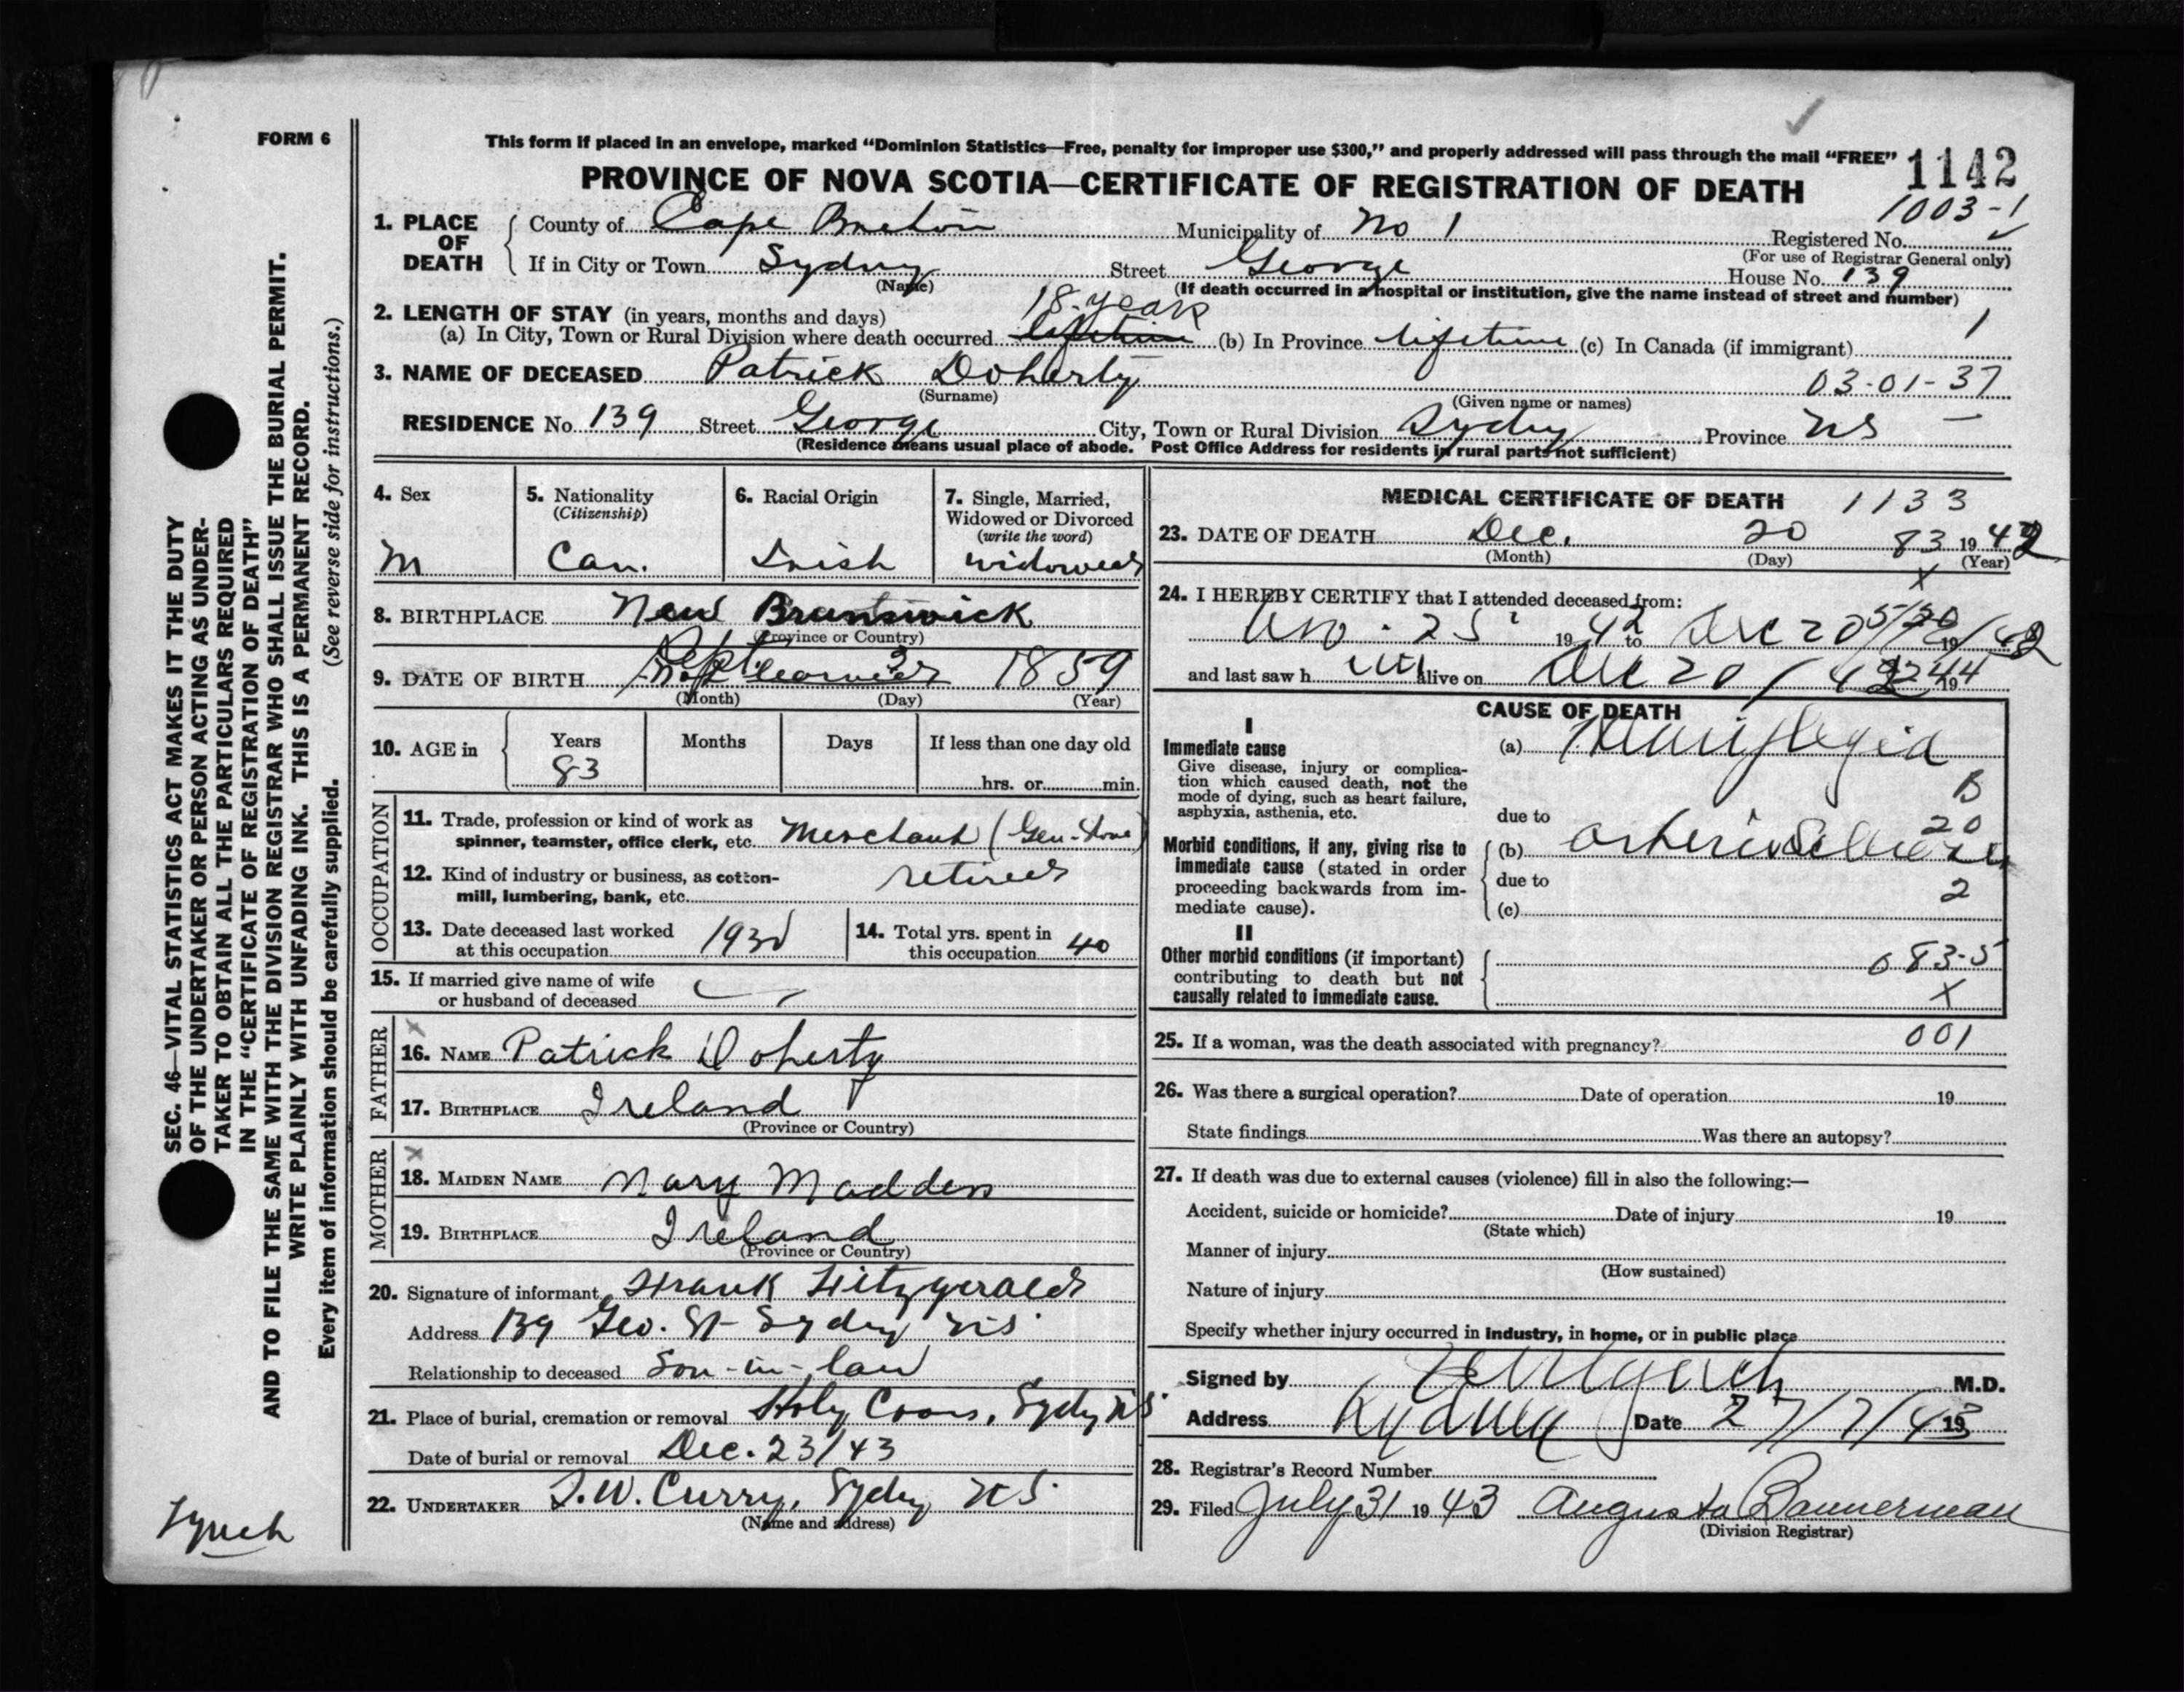 FORM 6
This form if placed in an envelope, marked “Dominion Statistics—Free, penalty for improper use $300,” and properly addressed will pass through the mail “FREE”
1142
PROVINCE OF NOVA SCOTIA—CERTIFICATE OF REGISTRATION OF DEATH
1003-1
1. PLACE OF DEATH County of Cape Breton Municipality of No 1 Registered No.
(For use of Registrar General only)
If in City or Town Sydney Street George House No. 139
(Name) (If death occurred in a hospital or institution, give the name instead of street and number)
2. LENGTH OF STAY (in years, months and days) 18 years 1
(a) In City, Town or Rural Division where death occurred lifetime (b) In Province lifetime (c) In Canada (if immigrant)
3. NAME OF DECEASED Patrick Doherty 03-01-37
(Surname) (Given name or names)
RESIDENCE No. 139 Street George City, Town or Rural Division Sydney Province NS
(Residence means usual place of abode. Post Office Address for residents in rural parts not sufficient)
4. Sex
M
5. Nationality
(Citizenship)
Can.
6. Racial Origin
Irish
7. Single, Married,
Widowed or Divorced
(write the word)
widowed
8. BIRTHPLACE New Brunswick
(Province or Country)
9. DATE OF BIRTH Sept. 3 1859
(Month) (Day) (Year)
10. AGE in Years Months Days If less than one day old
83 hrs. or min.
OCCUPATION
11. Trade, profession or kind of work as
spinner, teamster, office clerk, etc. Merchant (Gen-Store)
12. Kind of industry or business, as cotton-
mill, lumbering, bank, etc. retired
13. Date deceased last worked
at this occupation 1930
14. Total yrs. spent in
this occupation 40
15. If married give name of wife
or husband of deceased
FATHER
16. NAME Patrick Doherty
17. BIRTHPLACE Ireland
(Province or Country)
MOTHER
18. MAIDEN NAME Mary Madden
19. BIRTHPLACE Ireland
(Province or Country)
20. Signature of informant Frank Fitzgerald
Address 139 Geo. St Sydney NS.
Relationship to deceased Son-in-law
21. Place of burial, cremation or removal Holy Cross, Sydney NS.
Date of burial or removal Dec. 23/43
22. UNDERTAKER Curry, Sydney NS.
(Name and address)
MEDICAL CERTIFICATE OF DEATH 1133
23. DATE OF DEATH Dec. 20 83 1942
(Month) (Day) (Year)
X
24. I HEREBY CERTIFY that I attended deceased from:
25 1942 to Dec 20 19/42
and last saw h im alive on Dec 20/42 19
CAUSE OF DEATH
I
Immediate cause
Give disease, injury or complica-
tion which caused death, not the
mode of dying, such as heart failure,
asphyxia, asthenia, etc.
(a) Hemiplegia
B
due to
20
Morbid conditions, if any, giving rise to
immediate cause (stated in order
proceeding backwards from im-
mediate cause).
(b) Arteriosclerosis
due to
2
(c)
II
Other morbid conditions (if important)
contributing to death but not
causally related to immediate cause.
083-5
X
25. If a woman, was the death associated with pregnancy? 001
26. Was there a surgical operation? Date of operation 19
State findings Was there an autopsy?
27. If death was due to external causes (violence) fill in also the following:—
Accident, suicide or homicide? Date of injury 19
(State which)
Manner of injury
(How sustained)
Nature of injury
Specify whether injury occurred in industry, in home, or in public place
Signed by Lynch M.D.
Address Sydney Date 27/7/43 19
28. Registrar's Record Number
29. Filed July 31 1943 Augusta Bannerman
(Division Registrar)
SEC. 46—VITAL STATISTICS ACT MAKES IT THE DUTY
OF THE UNDERTAKER OR PERSON ACTING AS UNDER-
TAKER TO OBTAIN ALL THE PARTICULARS REQUIRED
IN THE “CERTIFICATE OF REGISTRATION OF DEATH”
AND TO FILE THE SAME WITH THE DIVISION REGISTRAR WHO SHALL ISSUE THE BURIAL PERMIT.
WRITE PLAINLY WITH UNFADING INK. THIS IS A PERMANENT RECORD.
Every item of information should be carefully supplied. (See reverse side for instructions.)
Lynch